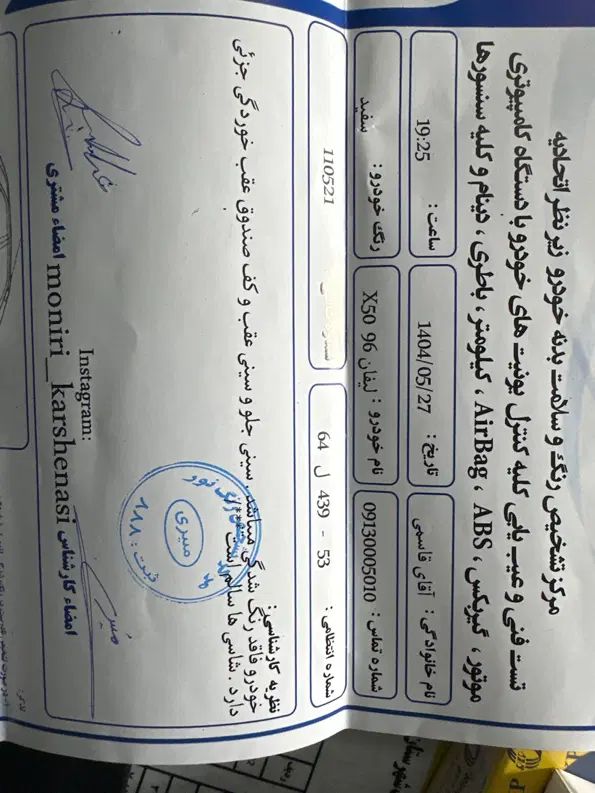 مرکز تشخیص رنگ و سلامت بدنه خودرو زیر نظر اتحادیه
تست فنی و عیب یابی کلیه کنترل یونیت های خودرو با دستگاه کامپیوتری
موتور ، گیربکس ، AirBag ، ABS ، کیلومتر ، باطری ، دینام و کلیه سنسورها
نام خانوادگی : آقای قاسمی
تاریخ : 1404/05/27
ساعت : 19:25
شماره تماس : 09130005010
نام خودرو : لیفان X50 96
رنگ خودرو : سفید
شماره انتظامی : 53 - 439 ل 64
110521
نظریه کارشناسی :
خودرو فاقد رنگ شدگی میباشد . سینی جلو و سینی عقب و کف صندوق عقب خوردگی جزئی
دارد . شاسی ها سالم است
منیری
امضاء کارشناس
Instagram:
moniri_karshenasi
امضاء مشتری